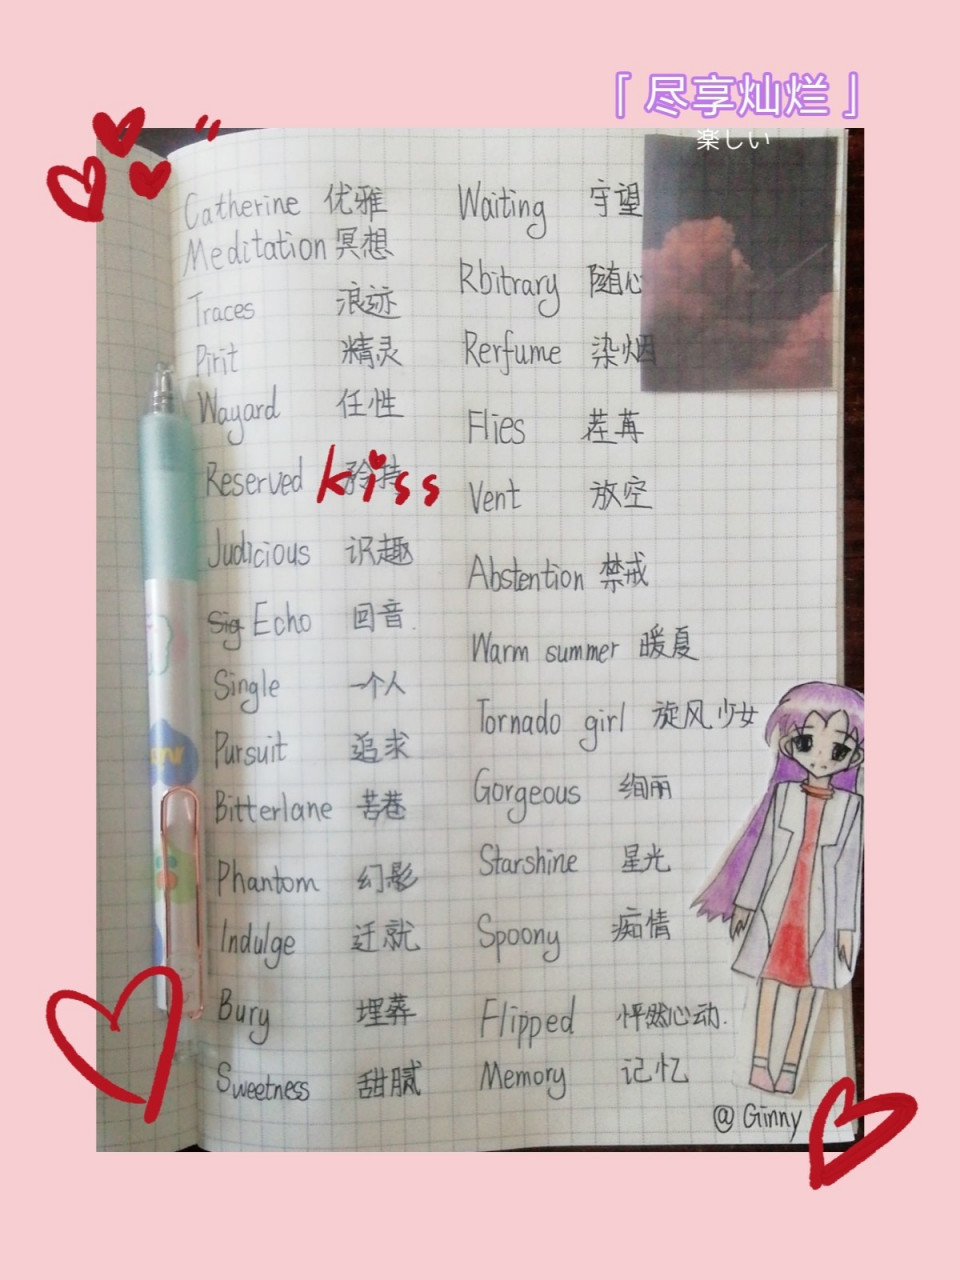 「尽享灿烂」
楽しい
Catherine 优雅
Meditation 冥想
Traces 浪迹
Pirit 精灵
Wayard 任性
Reserved 矜持
kiss
Judicious 识趣
Sig Echo 回音.
Single 一个人
Pursuit 追求
Bitterlane 苦巷
Phantom 幻影
Indulge 迁就
Bury 埋葬
Sweetness 甜腻
Waiting 守望
Rbitrary 随心
Rerfume 染烟
Flies 荏苒
Vent 放空
Abstention 禁戒
Warm summer 暖夏
Tornado girl 旋风少女
Gorgeous 绚丽
Starshine 星光
Spoony 痴情
Flipped 怦然心动.
Memory 记忆
@ Ginny